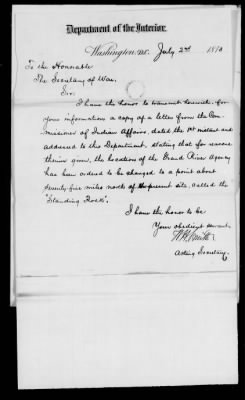 Department of the Interior,
Washington, D.C. July 2nd 187
To the Honorable
The Secretary of War,
Sir:
I have the honor to transmit herewith, for
your information a copy of a letter from the Com-
missioner of Indian Affairs, dated the 1st instant and
addressed to this Department, stating that for reasons
therein given, the location of the Grand River Agency
has been ordered to be changed to a point about
seventy-five miles north of the present site, called the
"Standing Rock".
I have the honor to be
Your obedient servant,
Smith
Acting Secretary.